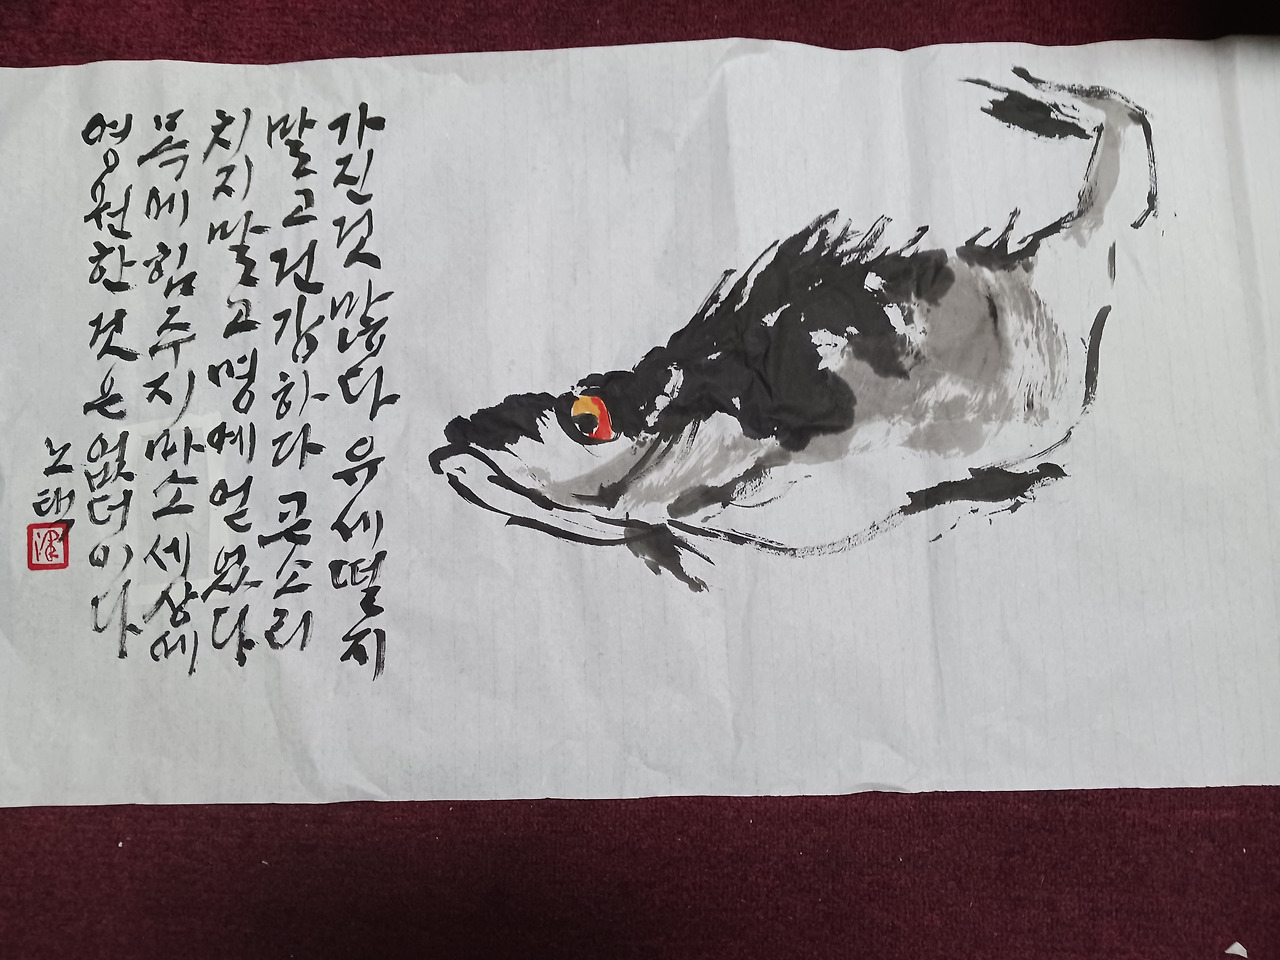 가진것 많다 유세떨지
말고 건강하다 큰소리
치지말고 명예 얻었다
목에 힘주지마소 세상에
영원한것은 없더이다
노택